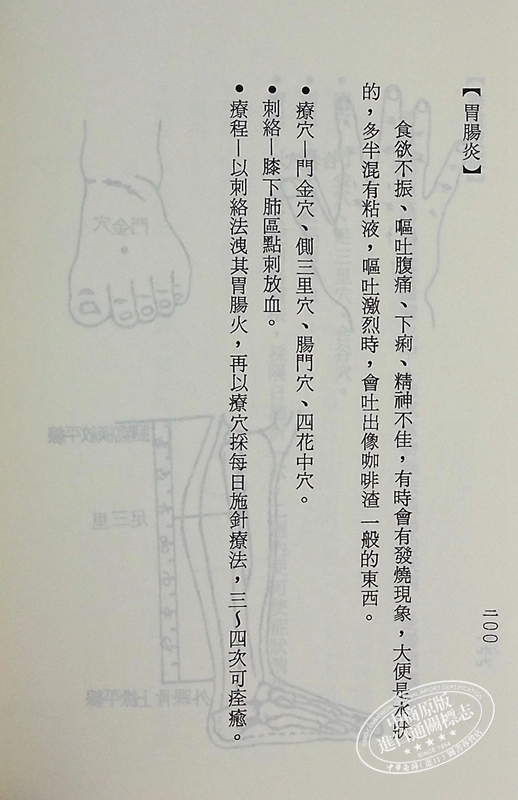 【胃腸炎】
食欲不振、嘔吐腹痛、下痢、精神不佳，有時會有發燒現象，大便是水狀
的，多半混有粘液，嘔吐激烈時，會吐出像咖啡渣一般的東西。
● 療穴－門金穴、側三里穴、腸門穴、四花中穴。
● 刺絡－膝下肺區點刺放血。
● 療程－以刺絡法洩其胃腸火，再以療穴採每日施針療法，三～四次可痊癒。
二〇〇
門金穴
足三里
外踝骨上緣平線
中商原版
進口通關標志